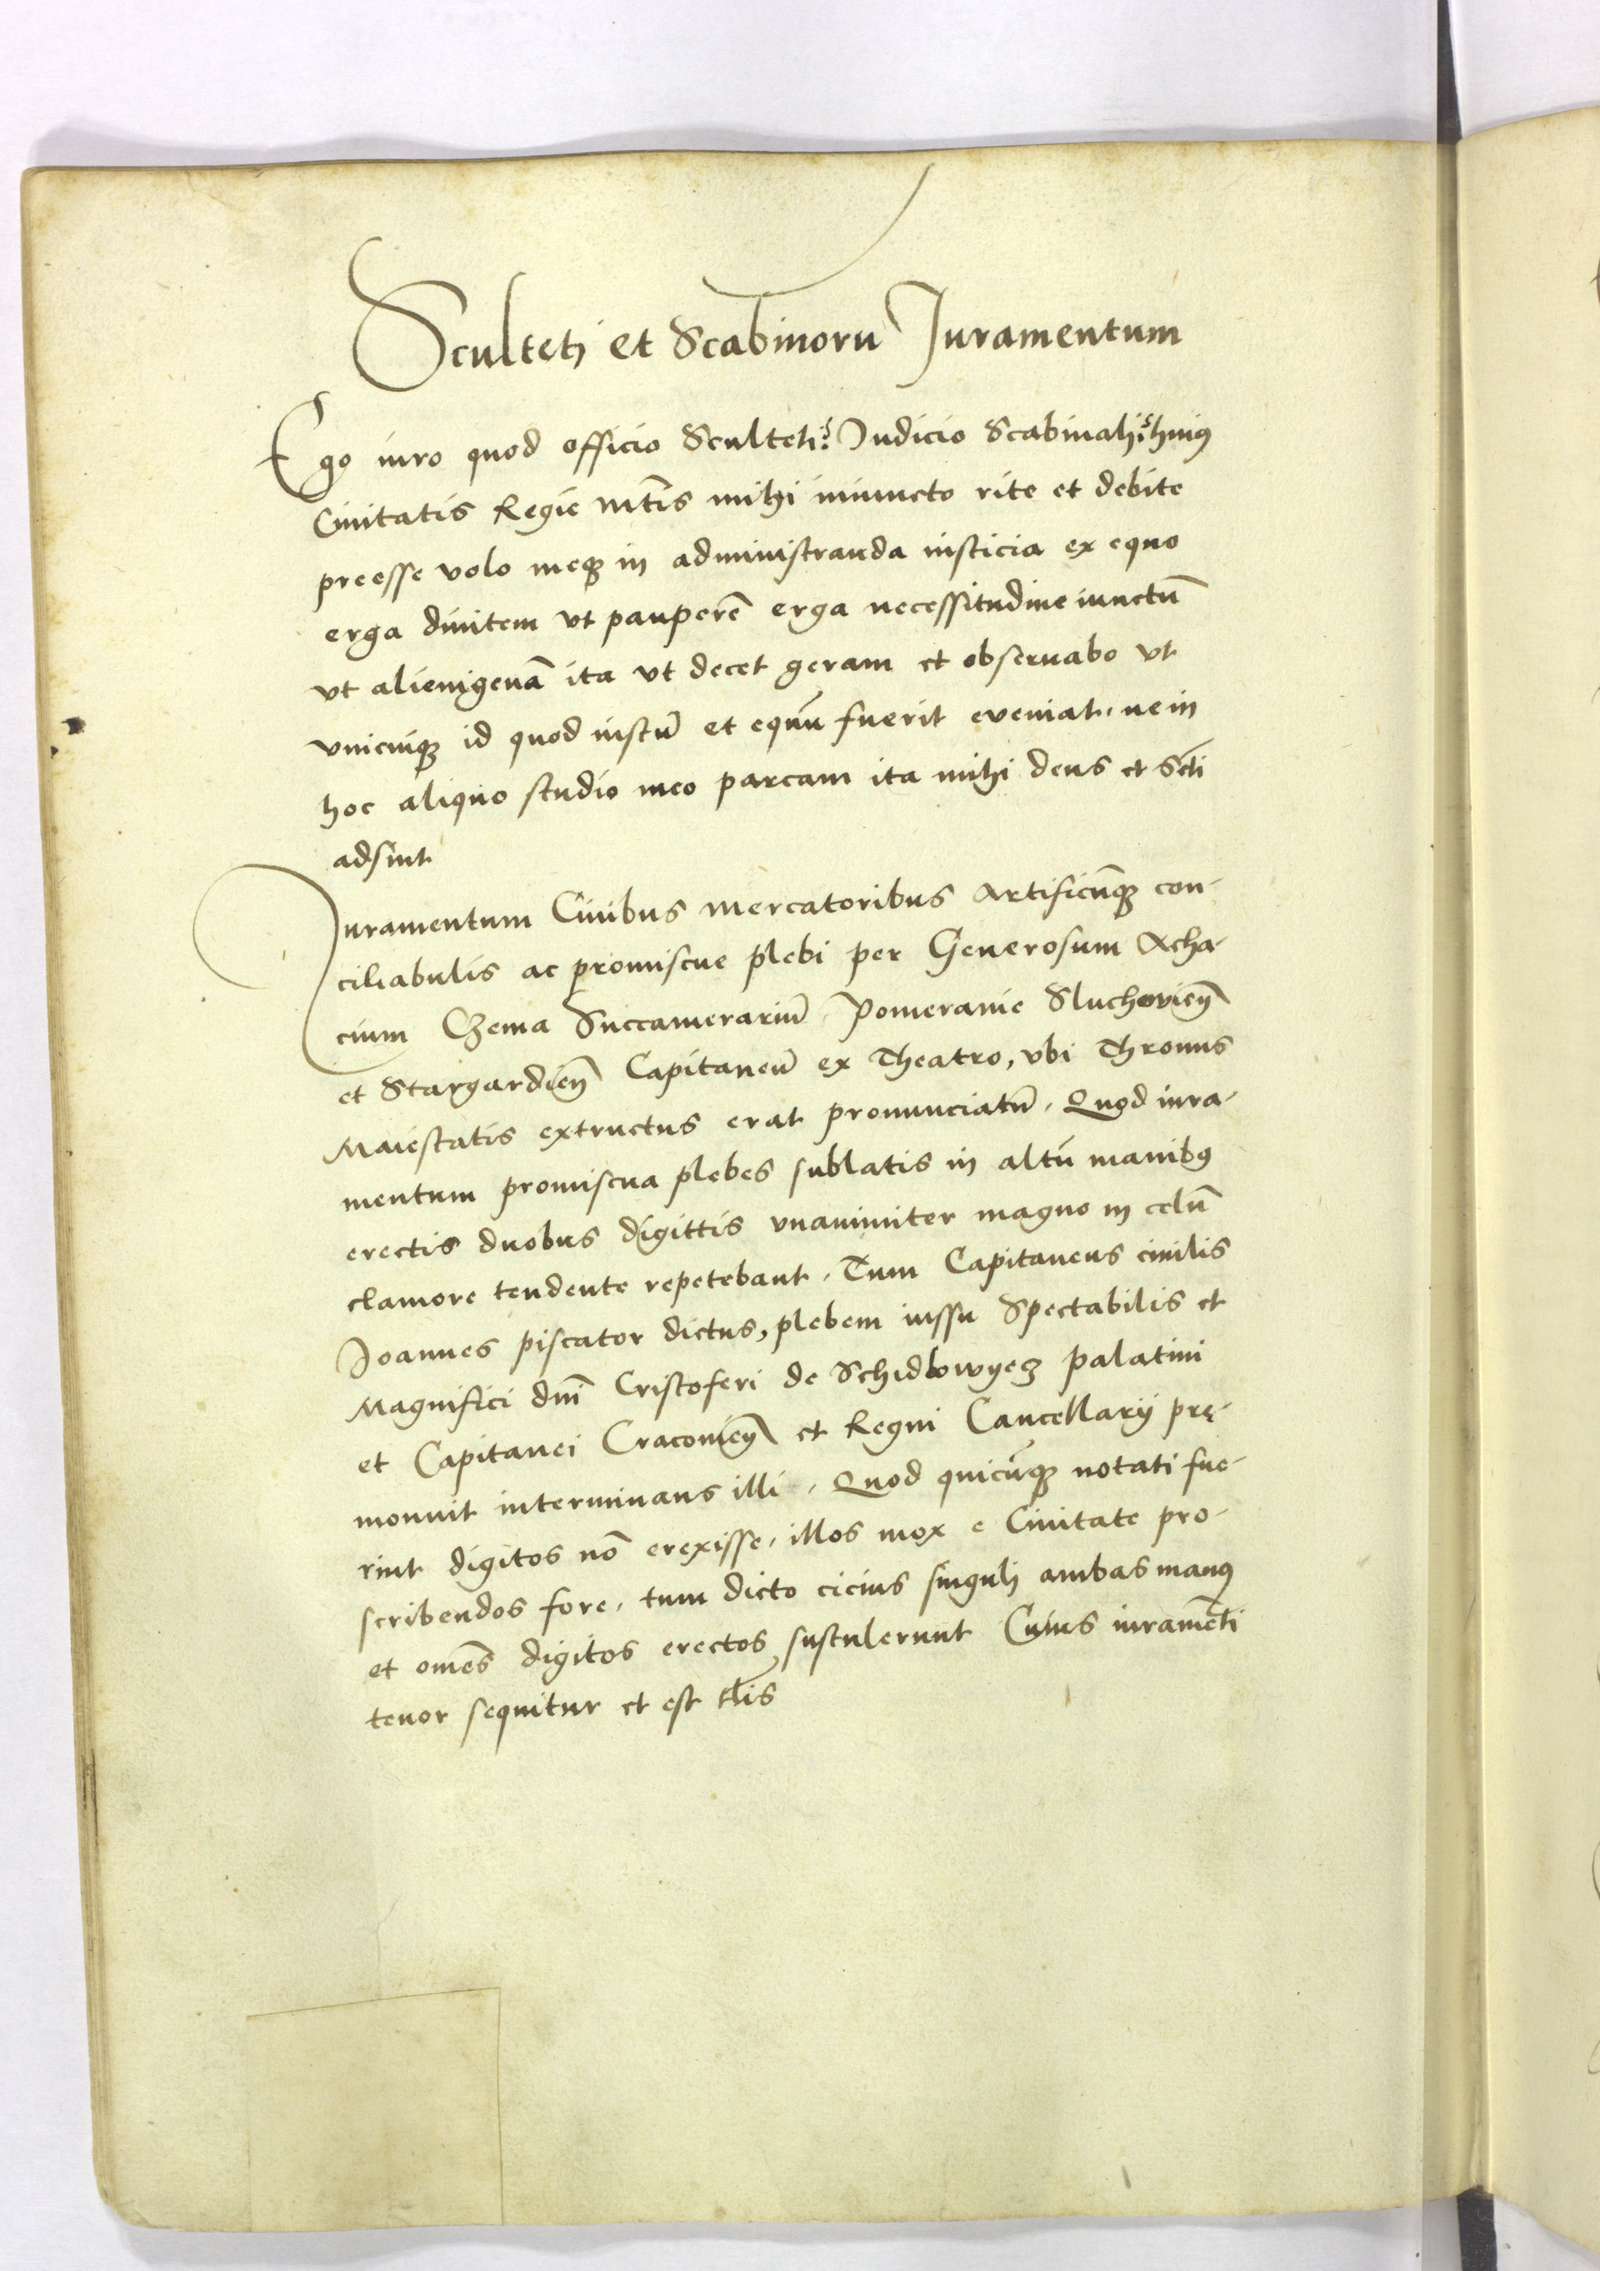 Sculteti et Scabinorū Iuramentum
Ego iuro quod officio Sculteti: Iudicio Scabinali: huiꝰ
Ciuitatis Regie Mtis mihi iniuncto rite et debite
preesse volo meqꝫ in administranda iusticia ex equo
erga diuitem vt pauperē erga necessitudine iunctū
vt alienigenā ita vt decet geram et obseruabo vt
vnicuiqꝫ id quod iustū et equū fuerit eveniat, ne in
hoc aliquo studio meo parcam ita mihi deus et Scti
adsint
Iuramentum Ciuibus mercatoribus Artificūqꝫ con-
ciliabulis ac promiscue plebi per Generosum Acha-
cium Czema Succamerariū Pomeranie Sluchovieñ
et Stargardieñ Capitaneū ex Theatro, vbi Thronus
Maiestatis extructus erat pronunciatū. Quod iura-
mentum promiscua plebes sublatis in altū manibꝰ
erectis duobus digittis vnanimiter magno in celū
clamore tendente repetebant. Tum Capitaneus ciuilis
Joannes piscator dictus, plebem iussu Spectabilis et
Magnifici dnī Cristoferi de Schidlowyecz palatini
et Capitanei Cracovieñ et Regni Cancellarij prę-
monuit interminans illi. Quod quicūqꝫ notati fue-
rint digitos nō erexisse, illos mox e Ciuitate pro-
scribendos fore, tum dicto cicius singuli ambas manꝰ
et omēs digitos erectos sustulerunt Cuius iuramēti
tenor sequitur et est tlis